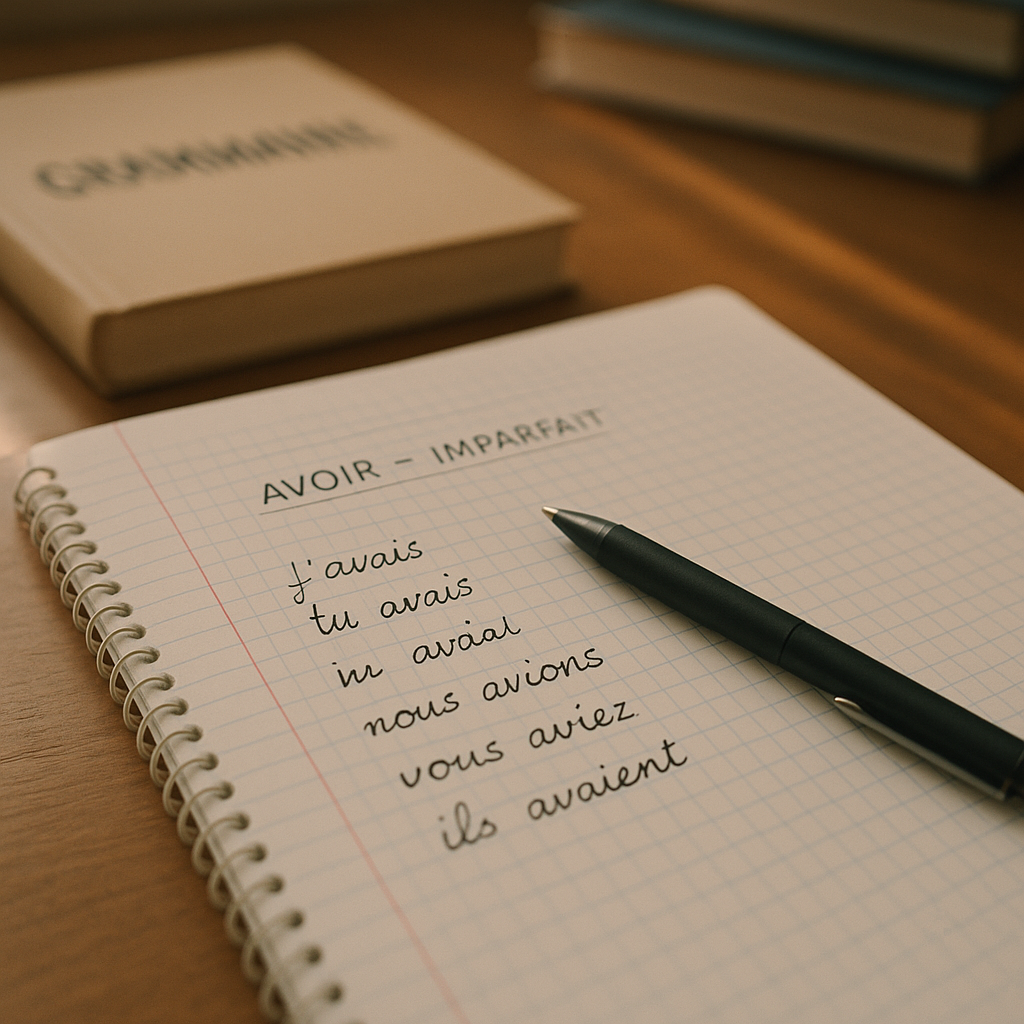 GRAMMAIRE
AVOIR – IMPARFAIT
j'avais
tu avais
nous avions
vous aviez
ils avaient